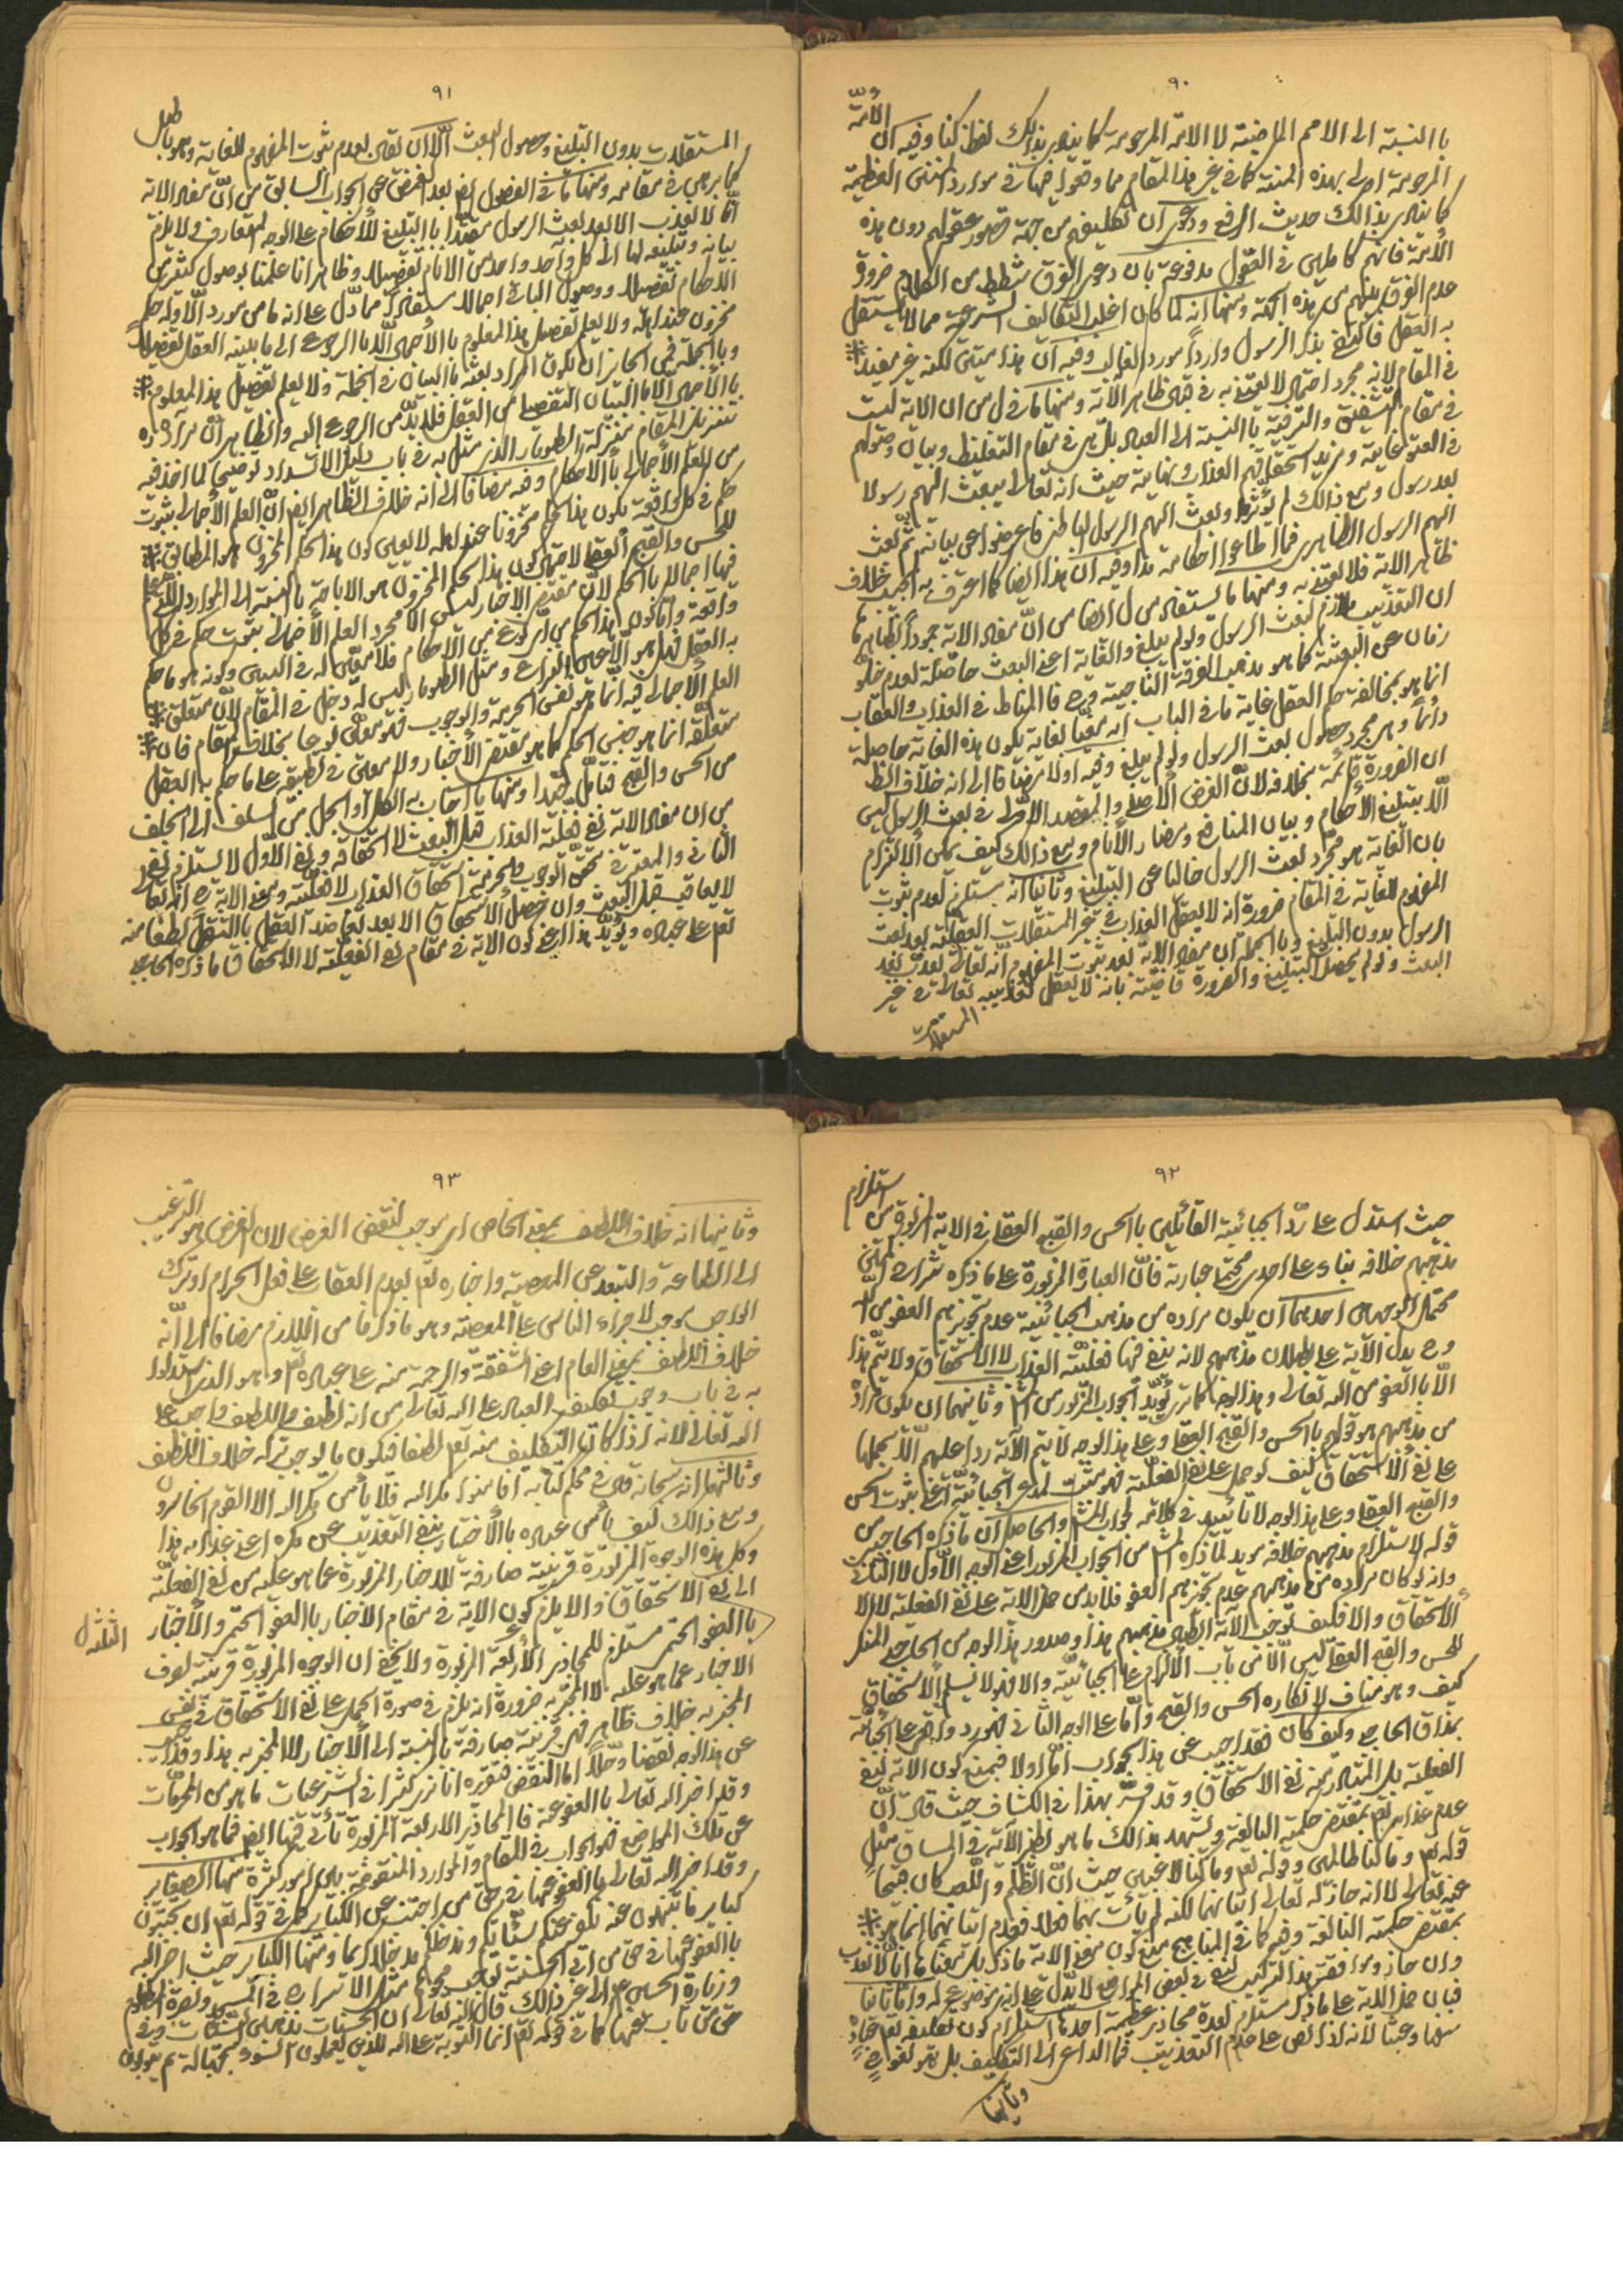 ٩٠
بالنسبة الى الامم الماضية لا الامة المرحومة كما ينادى بذلك لفظ كنا وفيه ان الأمّة
المرحومة اولى بهذه المنة كما في غير هذا المقام مما وقعوا فيها في موارد المنن العظيمة
كما ينادى بذالك حديث الرفع ودعوى ان تكليفهم من جهة قصور عقولهم دون هذه
الأمة فانهم كاملين في العقول مدفوعة بان دعوى الفرق شطط من الكلام ضرورة
عدم الفرق بينهم من هذه الجهة ومنها انه لما كان اغلب التكاليف الشرعية مما لا يستقل
به العقل فاكتفى بذكر الرسول واردا مورد الغالب وفيه ان هذا متين لكنه غير مفيد
في المقام لانه مجرد احتمال لا يعتنى به في قبال ظاهر الآية ومنها ان الاية ليست
في مقام الشفقة والترقية بالنسبة الى العباد بل هى في مقام التغليظ وبيان دخولهم
في العتو غايته ومزيد استحقاقهم العذاب ونهايته حيث انه تعالى يبعث اليهم رسولا
بعد رسول ومع ذالك لم يؤثر وبعث اليهم الرسول الباطن فاعرضوا عن بيانه ثم بعث
اليهم الرسول الظاهر فما اطاعوا احكامه هذا وفيه ان هذا ايضا كما اعترف به المجيب خلاف
ظاهر الاية فلا يعتنى به ومنها ما يستفاد من ان مفاد الاية
ان التعذيب ملازم لبعث الرسول ولو لم يبلغ والغاية اعنى البعث حاصلة لعدم خلو
زمان عن البعثة كما هو مذهب الفرقة الناجية فالمناط في العذاب والعقاب
انما هو بمخالفة حكم العقل غاية ما في الباب انه مغيا لغاية يكون هذه الغاية حاصلة
دائما وهي مجرد حصول بعث الرسول ولو لم يبلغ وفيه اولا مضافا الى انه خلاف الظ
ان الضرورة قائمة بخلافه لان الغرض الأصلى والمقصد الأولى في بعث الرسول ليس
الا تبليغ الأحكام وبيان المنافع ومضار الأنام ومع ذالك كيف يمكن الالتزام
بان الغاية هو مجرد بعث الرسول خاليا عن التبليغ وثانيا انه يستلزم لعدم ثبوت
المفهوم للغاية في المقام ضرورة انه لا يعقل العذاب في غير المستقلات العقلية بعد بعث
الرسول بدون التبليغ وبالجملة ان مفاد الاية بعد ثبوت المفهوم انه تعالى يعذب بعد
البعث ولو لم يحصل التبليغ والضرورة قاضية بانه لا يعقل تعذيبه تعالى في غير
المستقلات
٩١
المستقلات بدون التبليغ وحصول البعث الا ان يقال بعدم ثبوت المفهوم للغاية وهو باطل
كما برهن في مقامه ومنها ما في الفصول ايض بعد الغمض عن الجواب السابق من ان مفاد الاية
انا لا نعذب الا بعد بعث الرسول مقيدا بالتبليغ للأحكام على الوجه المتعارف فلا يلزم
بيانه وتبليغه لها الى كل واحد واحد من الانام تفصيلا وظاهر انا علمنا بوصول كثير من
الاحكام تفصيلا ووصول الباقى اجمالا يستفاد مما دل على انه ما من مورد الا وله حكم
مخزون عند اهله ولا يعلم تفصيل هذا المعلوم بالأجمال الا بالرجوع الى ما بينه العقل تفصيلا
وبالجملة فمن الجائز ان يكون المراد بعثه بالبيان في الجملة ولا يعلم تفصيل هذا المعلوم
بالأجمال الا بالبيان التفصيلى من العقل فلا بد من الرجوع اليه والظاهر ان مراده
تنزيل المقام منزلة الطومار الذى مثل به في باب دليل الانسداد توضيحا لما اخذ فيه
من العلم الأجمالى بالأحكام وفيه مضافا الى انه خلاف الظاهر ايض ان العلم الأجمالى بثبوت
حكم في كل واقعة يكون هذا الحكم مخزونا عند اهله لا يعين كون هذا الحكم المخزون هو المطابق
للحسن والقبح العقلى لاحتمال كون هذا الحكم المخزون هو الاباحة بالنسبة الى الموارد التى علم
فيها اجمالا بالحكم لان مقتضى الأخبار ليس الا مجرد العلم الأجمالى بثبوت حكم في كل
واقعة واما كون هذا الحكم من اى نوع من الاحكام فلا معين له في البين وكونه هو ما حكم
به العقل فهل هو الا عين النزاع ومثل الطومار ليس له دخل في المقام لان متعلق
العلم الأجمالى فيه انما هو نفس الحرمة والوجوب فهو معلق نوعا بخلاف المقام فان
متعلقه انما هو جنس الحكم كما هو مقتضى الأخبار ولا معين في تطبيقه على ما حكم به العقل
من الحسن والقبح فتامل جيدا ومنها ما اجاب به الكل او الجل من السلف الى الخلف
من ان مفاد الاية نفى فعلية العذاب قبل البعث لا استحقاقه ونفى الاول لا يستلزم نفى
الثانى والمعتبر في تحقق الوجوب والحرمة استحقاق العذاب لا فعليته ومعنى الاية انه تعالى
لا يعاقب قبل البعث وان حصل الأستحقاق الا بعد تعاضد العقل بالنقل لطفا منه
تعم على عباده ويؤيد هذا اعنى كون الاية في مقام نفى الفعلية لا الاستحقاق ما ذكره الحاجبى
٩٢
حيث استدل على رد الجبائية القائلين بالحسن والقبح العقلى في الاية المزبورة من استلزام
مذهبهم خلافه بناء على احد محتملى عبارته فان العبارة المزبورة على ما ذكره شراح
محتمل الوجهين احدهما ان يكون مراده من مذهب الجبائية عدم تجويزهم العفو من الله
وح يدل الآية على بطلان مذهبهم لانه ينفى فيها فعلية العذاب لا الاستحقاق ولا يتم هذا
الا بالعفو من الله تعالى وهذا الوجه كما ترى يؤيد الجواب المزبور وثانيهما ان يكون مراده
من مذهبهم هو قولهم بالحسن والقبح العقلى وعلى هذا الوجه لا يتم الآية ردا عليهم الا بحملها
على نفى الأستحقاق كيف لو حمل على نفى الفعلية فهو مثبت لمدعى الجبائية اعنى ثبوت الحسن
والقبح العقلى وعلى هذا الوجه لا تأييد في كلامه لجواب المش والحاصل ان ما ذكره الحاجبى من
قوله لاستلزام مذهبهم خلافه مويد لما ذكره من الجواب المزبور اعنى الوجه الأول لا الثانى
وانه لو كان مراده من مذهبهم عدم تجويزهم العفو فلا بد من حمل الاية على نفى الفعلية لا الى
الأستحقاق والا فكيف توجب الاية ابطال مذهبهم هذا وصدور هذا الوجه من الحاجبى المنكر
للحسن والقبح العقلى ليس الا من باب الألزام على الجبائية والا فهو لا يسلم الاستحقاق
كيف وهو مناف لانكاره الحسن والقبح واما على الوجه الثانى فهو رد واقعى على الجبائية
بمذاق الحاجبى وكيف كان فقد اجيب عن هذا الجواب اما اولا فبمنع كون الاية لنفى
الفعلية بل المتبادر منه نفى الاستحقاق وقد فسر بهذا في الكشاف حيث قال ان
عدم عذابه تعم بمقتضى حكمته البالغة ويشهد بذالك ما هو نظير الآية في المساق مثل
قوله تعم وما كنا ظالمين وقوله تعم وما كنا لاعبين حيث ان الظلم واللعب كان قبيحا
عنه تعالى لا انه جاز له تعالى اتيانهما لكنه لم يأت بهما فعلا فعدم اتيانهما انما هو
بمقتضى حكمته البالغة وفيه كما في المناهج منع كون معنى الاية ما ذكر بل معناها انا لا نعذب
وان جاز وموافقة هذا التركيب لنفى في بعض المواضع لا يدل على انه موضوع له واما ثانيا
فبان حمل الاية على ما ذكر مستلزم لعدة محاذير عظيمة احدها استلزام كون تكليفه تعم عباده
سفها وعبثا لانه اذا نص على عدم التعذيب فما الداعى الى التكليف بل هو لغو
وثانيها
٩٣
وثانيها انه خلاف اللطف بمعنى الخاص اى يوجب لنقض الغرض لان الغرض هو الترغيب
الى الطاعة والتبعد عن المعصية واخباره تعم بعدم العقاب على فعل الحرام او ترك
الواجب يوجب لاجراء الناس على المعصية وهو ما ذكرنا من اللازم مضافا الى انه
خلاف اللطف بمعنى العام اعنى الشفقة والرحمة منه على عباده وهو الذى استدلوا
به في باب وجوب تكليف العباد على الله تعالى من انه لطيف واللطف واجب على
الله تعالى لانه اذا كان التكليف منه تعم لطفا فيكون ما يوجب تركه خلاف اللطف
وثالثها انه سبحانه قال في محكم كتابه افامنوا مكر الله فلا يأمن مكر الله الا القوم الخاسرون
ومع ذالك كيف يأمن عباده بالأخبار بنفى التعذيب عن مكره اعنى عذابه هذا
وكل هذه الوجوه المزبورة قرينة صارفة للاخبار المزبورة عما هو عليه من نفى الفعلية
الى نفى الاستحقاق والا يلزم كون الاية في مقام الاخبار بالعفو الحتمى والأخبار
بالعفو الحتمى مستلزم للمحاذير الأربعة المزبورة ولا يخفى ان الوجوه المزبورة قرينة لصرف
الثلثة ل
الاخبار عما هو عليه لا المخبر به ضرورة انه يلزم في صورة الحمل على نفى الاستحقاق في نفس
المخبر به خلاف ظاهر فهى قرينة صارفة بالنسبة الى الأخبار لا المخبر به هذا وقد اجيب
عن هذا الوجه نقضا وحلا اما النقض فتقريره انا نرى كثيرا في الشرعيات ما هو من المحرمات
وقد اخبر الله تعالى بالعفو عنه فالمحاذير الاربعة المزبورة تأتى فيها ايض فما هو الجواب
عن تلك المواضع فهو الجواب في المقام والموارد المنقوضة بها امور كثيرة منها الصغاير
وقد اخبر الله تعالى بالعفو عنها في حق من اجتنب عن الكبائر كما في قوله تعم ان تجتنبوا
كباير ما تنهون عنه نكفر عنكم سيئاتكم وندخلكم مدخلا كريما ومنها الكبائر حيث اخبر الله
بالعفو عنها في حق من اتى الحسنة توجب محوها مثل الاسراء في المسجد ونصرة المظلوم
وزيارة الحسين ع الى غير ذالك قال الله تعالى ان الحسنات يذهبن السيئات وفى
حق من تاب عنها كما في قوله تعم انما التوبة على الله للذين يعملون السوء بجهالة ثم يتوبون